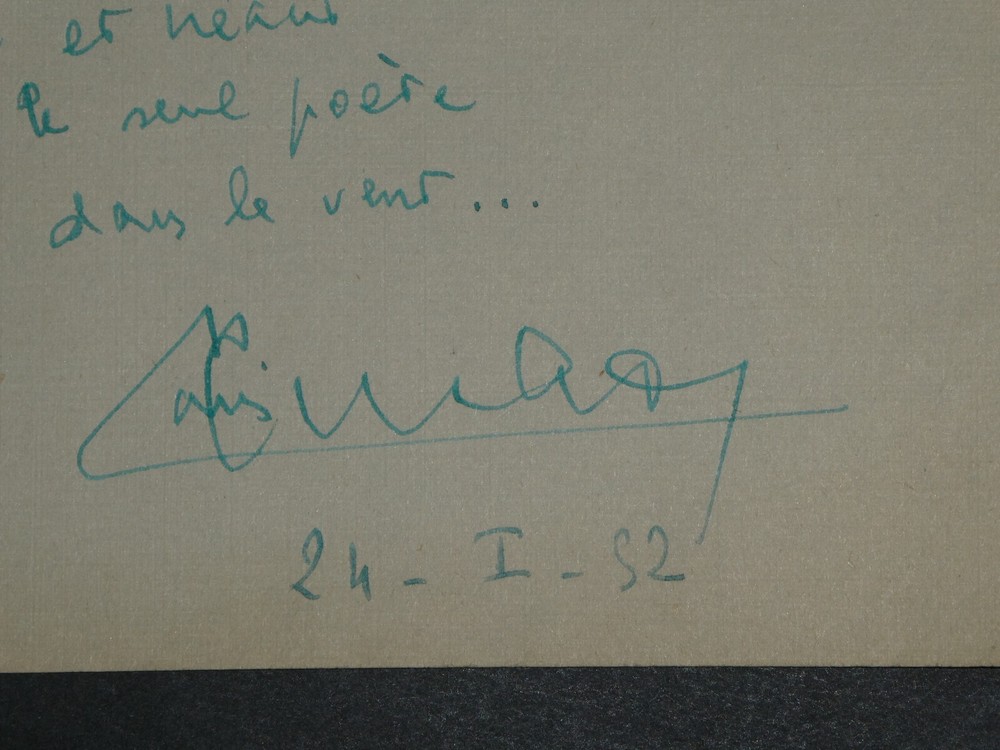 et néant
le seul poète
dans le vent...
24 - I - 52